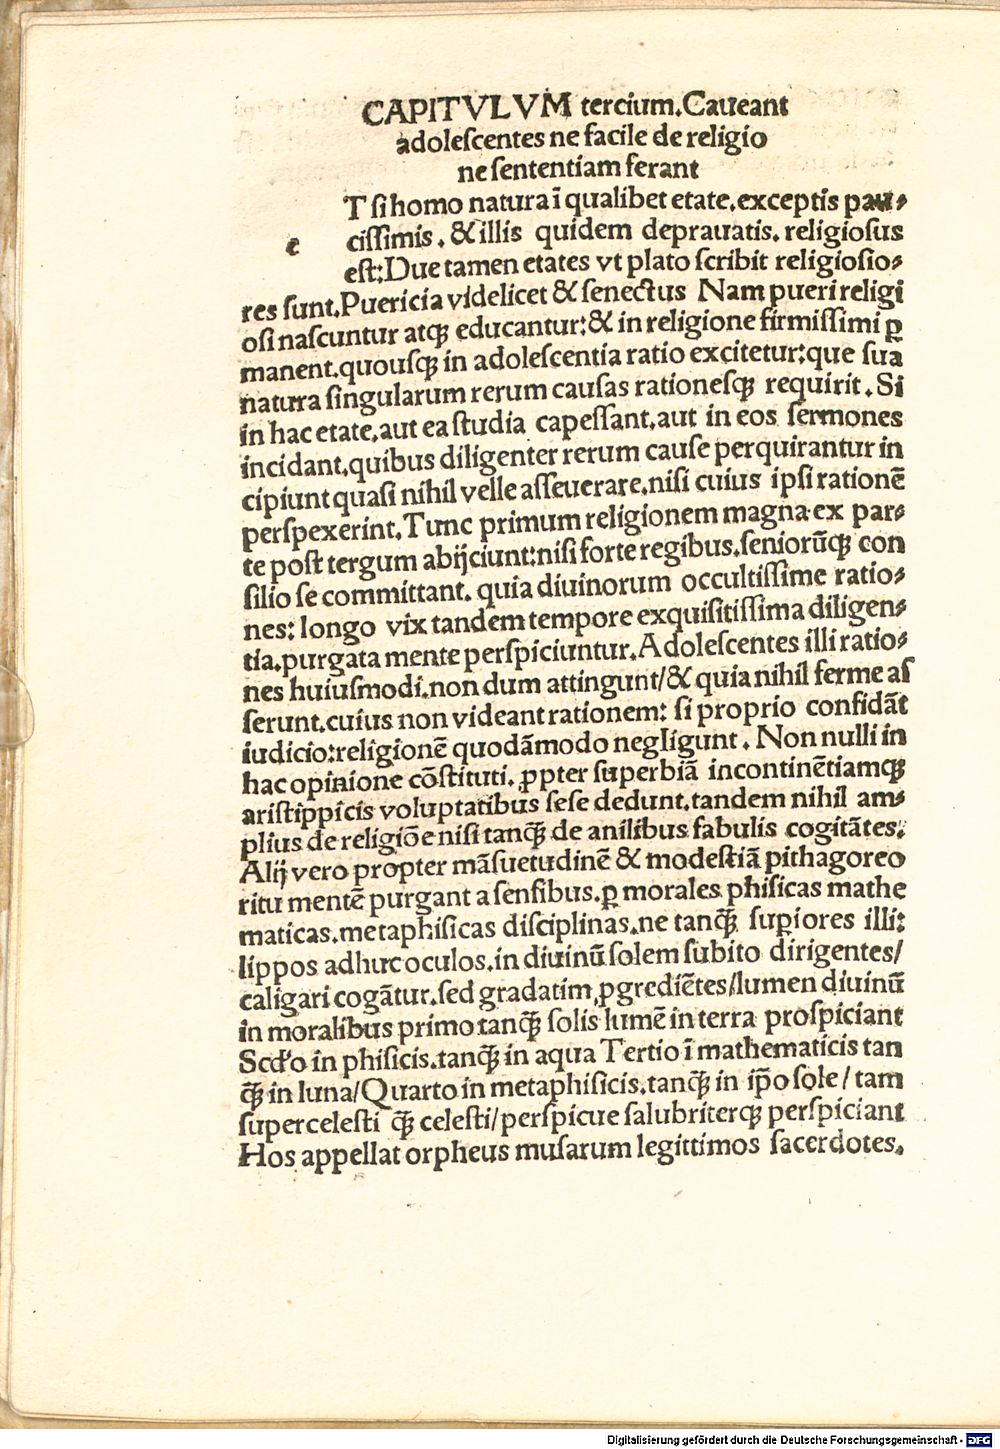 CAPITVLVM tercium.Caueant
adoleſcentes ne facile de religio
ne ſententiam ferant
T ſi homo natura ī qualibet etate.exceptis pau⸗
e ciſſimis. & illis quidem deprauatis. religioſus
eſt:Due tamen etates vt plato ſcribit religioſio⸗
res ſunt.Puericia videlicet & ſenectus Nam pueri religi
oſi naſcuntur atqꝫ educantur:& in religione firmiſſimi ꝑ
manent.quouſqꝫ in adoleſcentia ratio excitetur:que ſua
natura ſingularum rerum cauſas rationeſqꝫ requirit. Si
in hac etate.aut ea ſtudia capeſſant.aut in eos ſermones
incidant.quibus diligenter rerum cauſe perquirantur in
cipiunt quaſi nihil velle aſſeuerare.niſi cuius ipſi rationē
perſpexerint.Tunc primum religionem magna ex par⸗
te poſt tergum abijciunt:niſi forte regibus.ſeniorūqꝫ con
ſilio ſe committant. quia diuinorum occultiſſime ratio⸗
nes: longo vix tandem tempore exquiſitiſſima diligen⸗
tia.purgata mente perſpiciuntur.Adoleſcentes illi ratio⸗
nes huiuſmodi.non dum attingunt/& quia nihil ferme aſ
ſerunt.cuius non videant rationem: ſi proprio confidāt
iudicio:religionē quodāmodo negligunt. Non nulli in
hac opinione cōſtituti. ꝓpter ſuperbiā incontinētiamqꝫ
ariſtippicis voluptatibus ſeſe dedunt.tandem nihil am⸗
plius de religiōe niſi tanqꝫ̄ de anilibus fabulis cogitātes.
Alij vero propter māſuetudinē & modeſtiā pithagoreo
ritu mentē purgant a ſenſibus.ꝑ morales phiſicas mathe
maticas.metaphiſicas diſciplinas.ne tanqꝫ̄ ſuꝑiores illi:
lippos adhuc oculos.in diuinū ſolem ſubito dirigentes/
caligari cogātur.ſed gradatim ꝓgrediētes/lumen diuinū
in moralibus primo tanqꝫ̄ ſolis lumē in terra proſpiciant
Scd'o in phiſicis.tanqꝫ̄ in aqua Tertio ī mathematicis tan
qꝫ̄ in luna/Quarto in metaphiſicis.tanqꝫ̄ in ip̄o ſole/ tam
ſuperceleſti qꝫ̄ celeſti/perſpicue ſalubriterqꝫ perſpiciant
Hos appellat orpheus muſarum legittimos ſacerdotes.
Digitalisierung gefördert durch die Deutsche Forschungsgemeinschaft - DFG